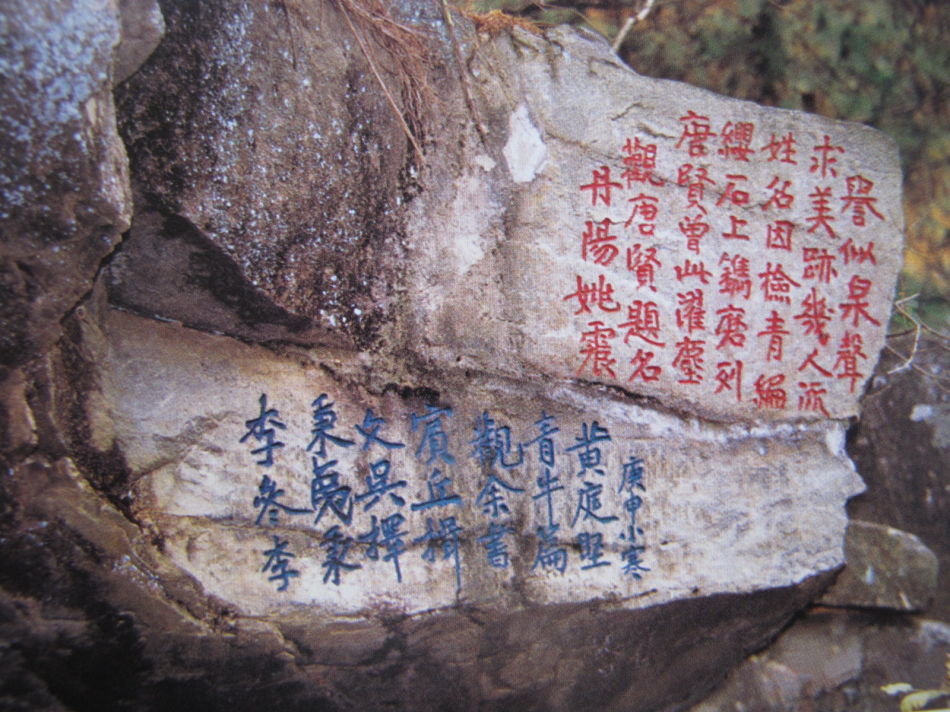 丹陽姚震
觀唐賢題名
唐賢曾此濯塵
纓石上鐫磨列
姓名因檢青編
求美跡幾人流
譽似泉聲
李參李
秉彞秉
文吳擇
賓丘揖
觀余書
青牛篇
黄庭堅
庚申小寒